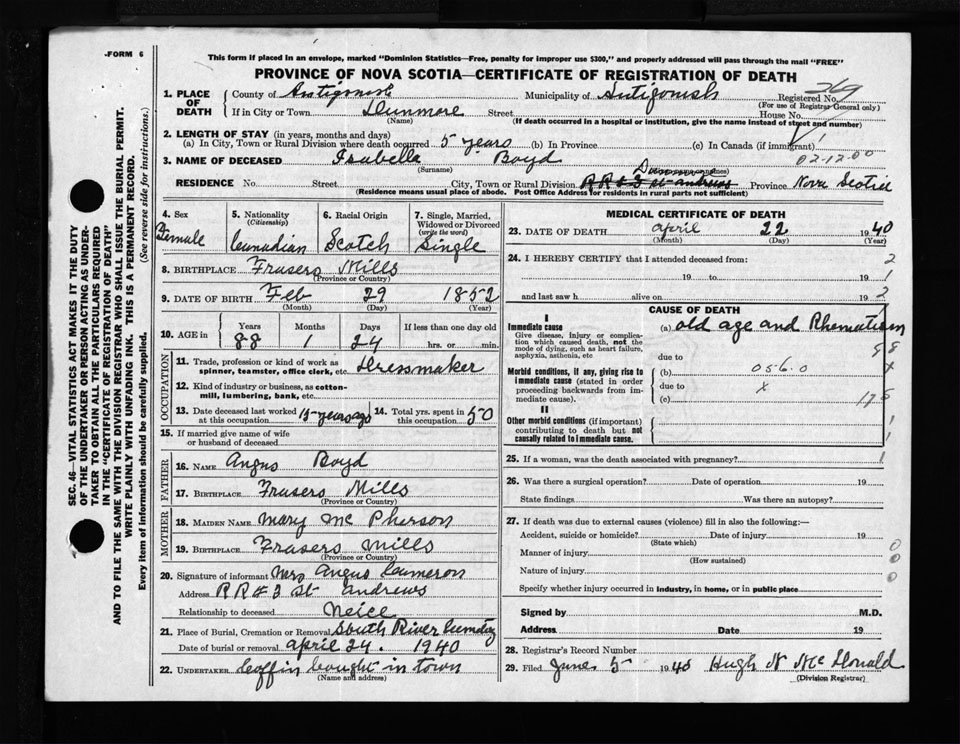 -FORM 6
This form if placed in an envelope, marked "Dominion Statistics—Free, penalty for improper use $300," and properly addressed will pass through the mail "FREE"
PROVINCE OF NOVA SCOTIA—CERTIFICATE OF REGISTRATION OF DEATH
1. PLACE OF DEATH County of Antigonish Municipality of Antigonish Registered No.
(For use of Registrar General only)
If in City or Town Dunmore Street House No.
(Name) (If death occurred in a hospital or institution, give the name instead of street and number)
2. LENGTH OF STAY (in years, months and days)
(a) In City, Town or Rural Division where death occurred 5 years (b) In Province (c) In Canada (if immigrant)
3. NAME OF DECEASED Isabella Boyd 02-12-00
(Surname)
Dunmore
RESIDENCE No. Street City, Town or Rural Division RR#3 St andrews Province Nova Scotia
(Residence means usual place of abode. Post Office Address for residents in rural parts not sufficient)
4. Sex Female
5. Nationality (Citizenship) Canadian
6. Racial Origin Scotch
7. Single, Married, Widowed or Divorced (write the word) Single
8. BIRTHPLACE Frasers Mills
(Province or Country)
9. DATE OF BIRTH Feb 29 1852
(Month) (Day) (Year)
10. AGE in Years Months Days If less than one day old
88 1 24 hrs. or min.
OCCUPATION
11. Trade, profession or kind of work as spinner, teamster, office clerk, etc. Dressmaker
12. Kind of industry or business, as cotton-mill, lumbering, bank, etc.
13. Date deceased last worked at this occupation 15 years ago
14. Total yrs. spent in this occupation 50
15. If married give name of wife or husband of deceased
FATHER
16. NAME Angus Boyd
17. BIRTHPLACE Frasers Mills
(Province or Country)
MOTHER
18. MAIDEN NAME Mary Mc Pherson
19. BIRTHPLACE Frasers Mills
(Province or Country)
20. Signature of informant Mrs Angus Cameron
Address RR#3 St andrews
Relationship to deceased Neice
21. Place of Burial, Cremation or Removal South River Cemetery
Date of burial or removal april 24. 1940
22. UNDERTAKER Coffin bought in town
(Name and address)
MEDICAL CERTIFICATE OF DEATH
23. DATE OF DEATH april 22 1940
(Month) (Day) (Year)
24. I HEREBY CERTIFY that I attended deceased from: 2
19 to 19 1
and last saw h alive on 19 2
CAUSE OF DEATH
I
Immediate cause (a) old age and Rhematism
Give disease, injury or complication which caused death, not the mode of dying, such as heart failure, asphyxia, asthenia, etc
due to
Morbid conditions, if any, giving rise to immediate cause (stated in order proceeding backwards from immediate cause).
(b) 056.0
due to x
(c) 175
II
Other morbid conditions (if important) contributing to death but not causally related to immediate cause.
25. If a woman, was the death associated with pregnancy?
26. Was there a surgical operation? Date of operation 19
State findings Was there an autopsy?
27. If death was due to external causes (violence) fill in also the following:—
Accident, suicide or homicide? Date of injury 19
(State which)
Manner of injury 0
(How sustained) 0
Nature of injury 0
Specify whether injury occurred in industry, in home, or in public place
Signed by M.D.
Address Date 19
28. Registrar's Record Number
29. Filed June 5 1940 Hugh N McDonald
(Division Registrar)
SEC. 46—VITAL STATISTICS ACT MAKES IT THE DUTY
OF THE UNDERTAKER OR PERSON ACTING AS UNDER-
TAKER TO OBTAIN ALL THE PARTICULARS REQUIRED
IN THE "CERTIFICATE OF REGISTRATION OF DEATH"
AND TO FILE THE SAME WITH THE DIVISION REGISTRAR WHO SHALL ISSUE THE BURIAL PERMIT.
WRITE PLAINLY WITH UNFADING INK. THIS IS A PERMANENT RECORD.
Every item of information should be carefully supplied. (See reverse side for instructions.)